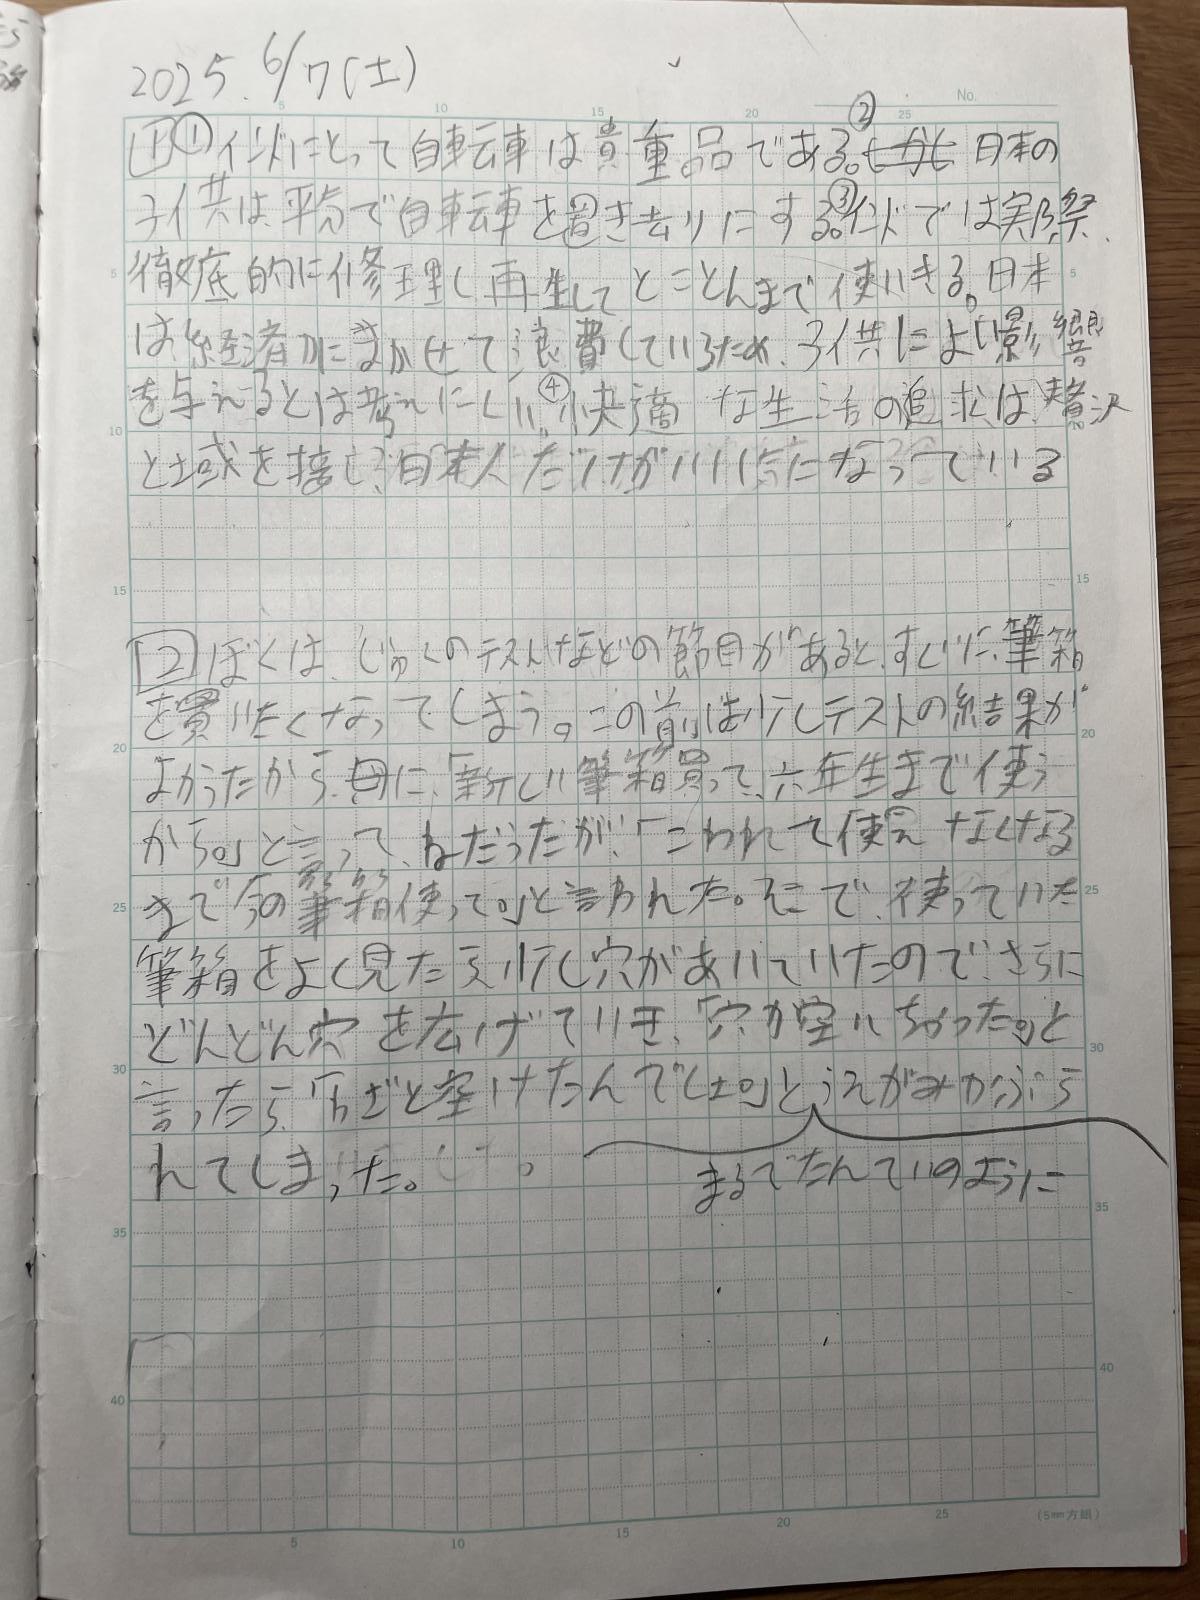 2025. 6/7(土)
No.
1 ① インドにとって自転車は貴重品である。② 日本の
子供は平気で自転車を置き去りにする。③インドでは実際、
徹底的に修理し再生してとことんまで使いきる。日本
は経済力にまかせて浪費しているため、子供によい影響
を与えるとは考えにくい。④快適な生活の追求は、贅沢
と域を接し、日本人だけがいい気になっている
2 ぼくは、じゅくのテストなどの節目があると、すぐに、筆箱
を買いたくなってしまう。この前は少しテストの結果が
よかったから、母に、「新しい筆箱買って、六年生まで使う
から。」と言って、ねだったが、「こわれて使えなくなる
まで今の筆箱使って。」と言われた。そこで、使っていた
筆箱をよく見たら、少し穴があいていたので、さらに
どんどん穴を広げていき、「穴が空いちゃった。」と
言ったら、「わざと空けたんでしょ。」とうえからみかぶら
れてしまった。
まるでたんていのように
(5mm方眼)